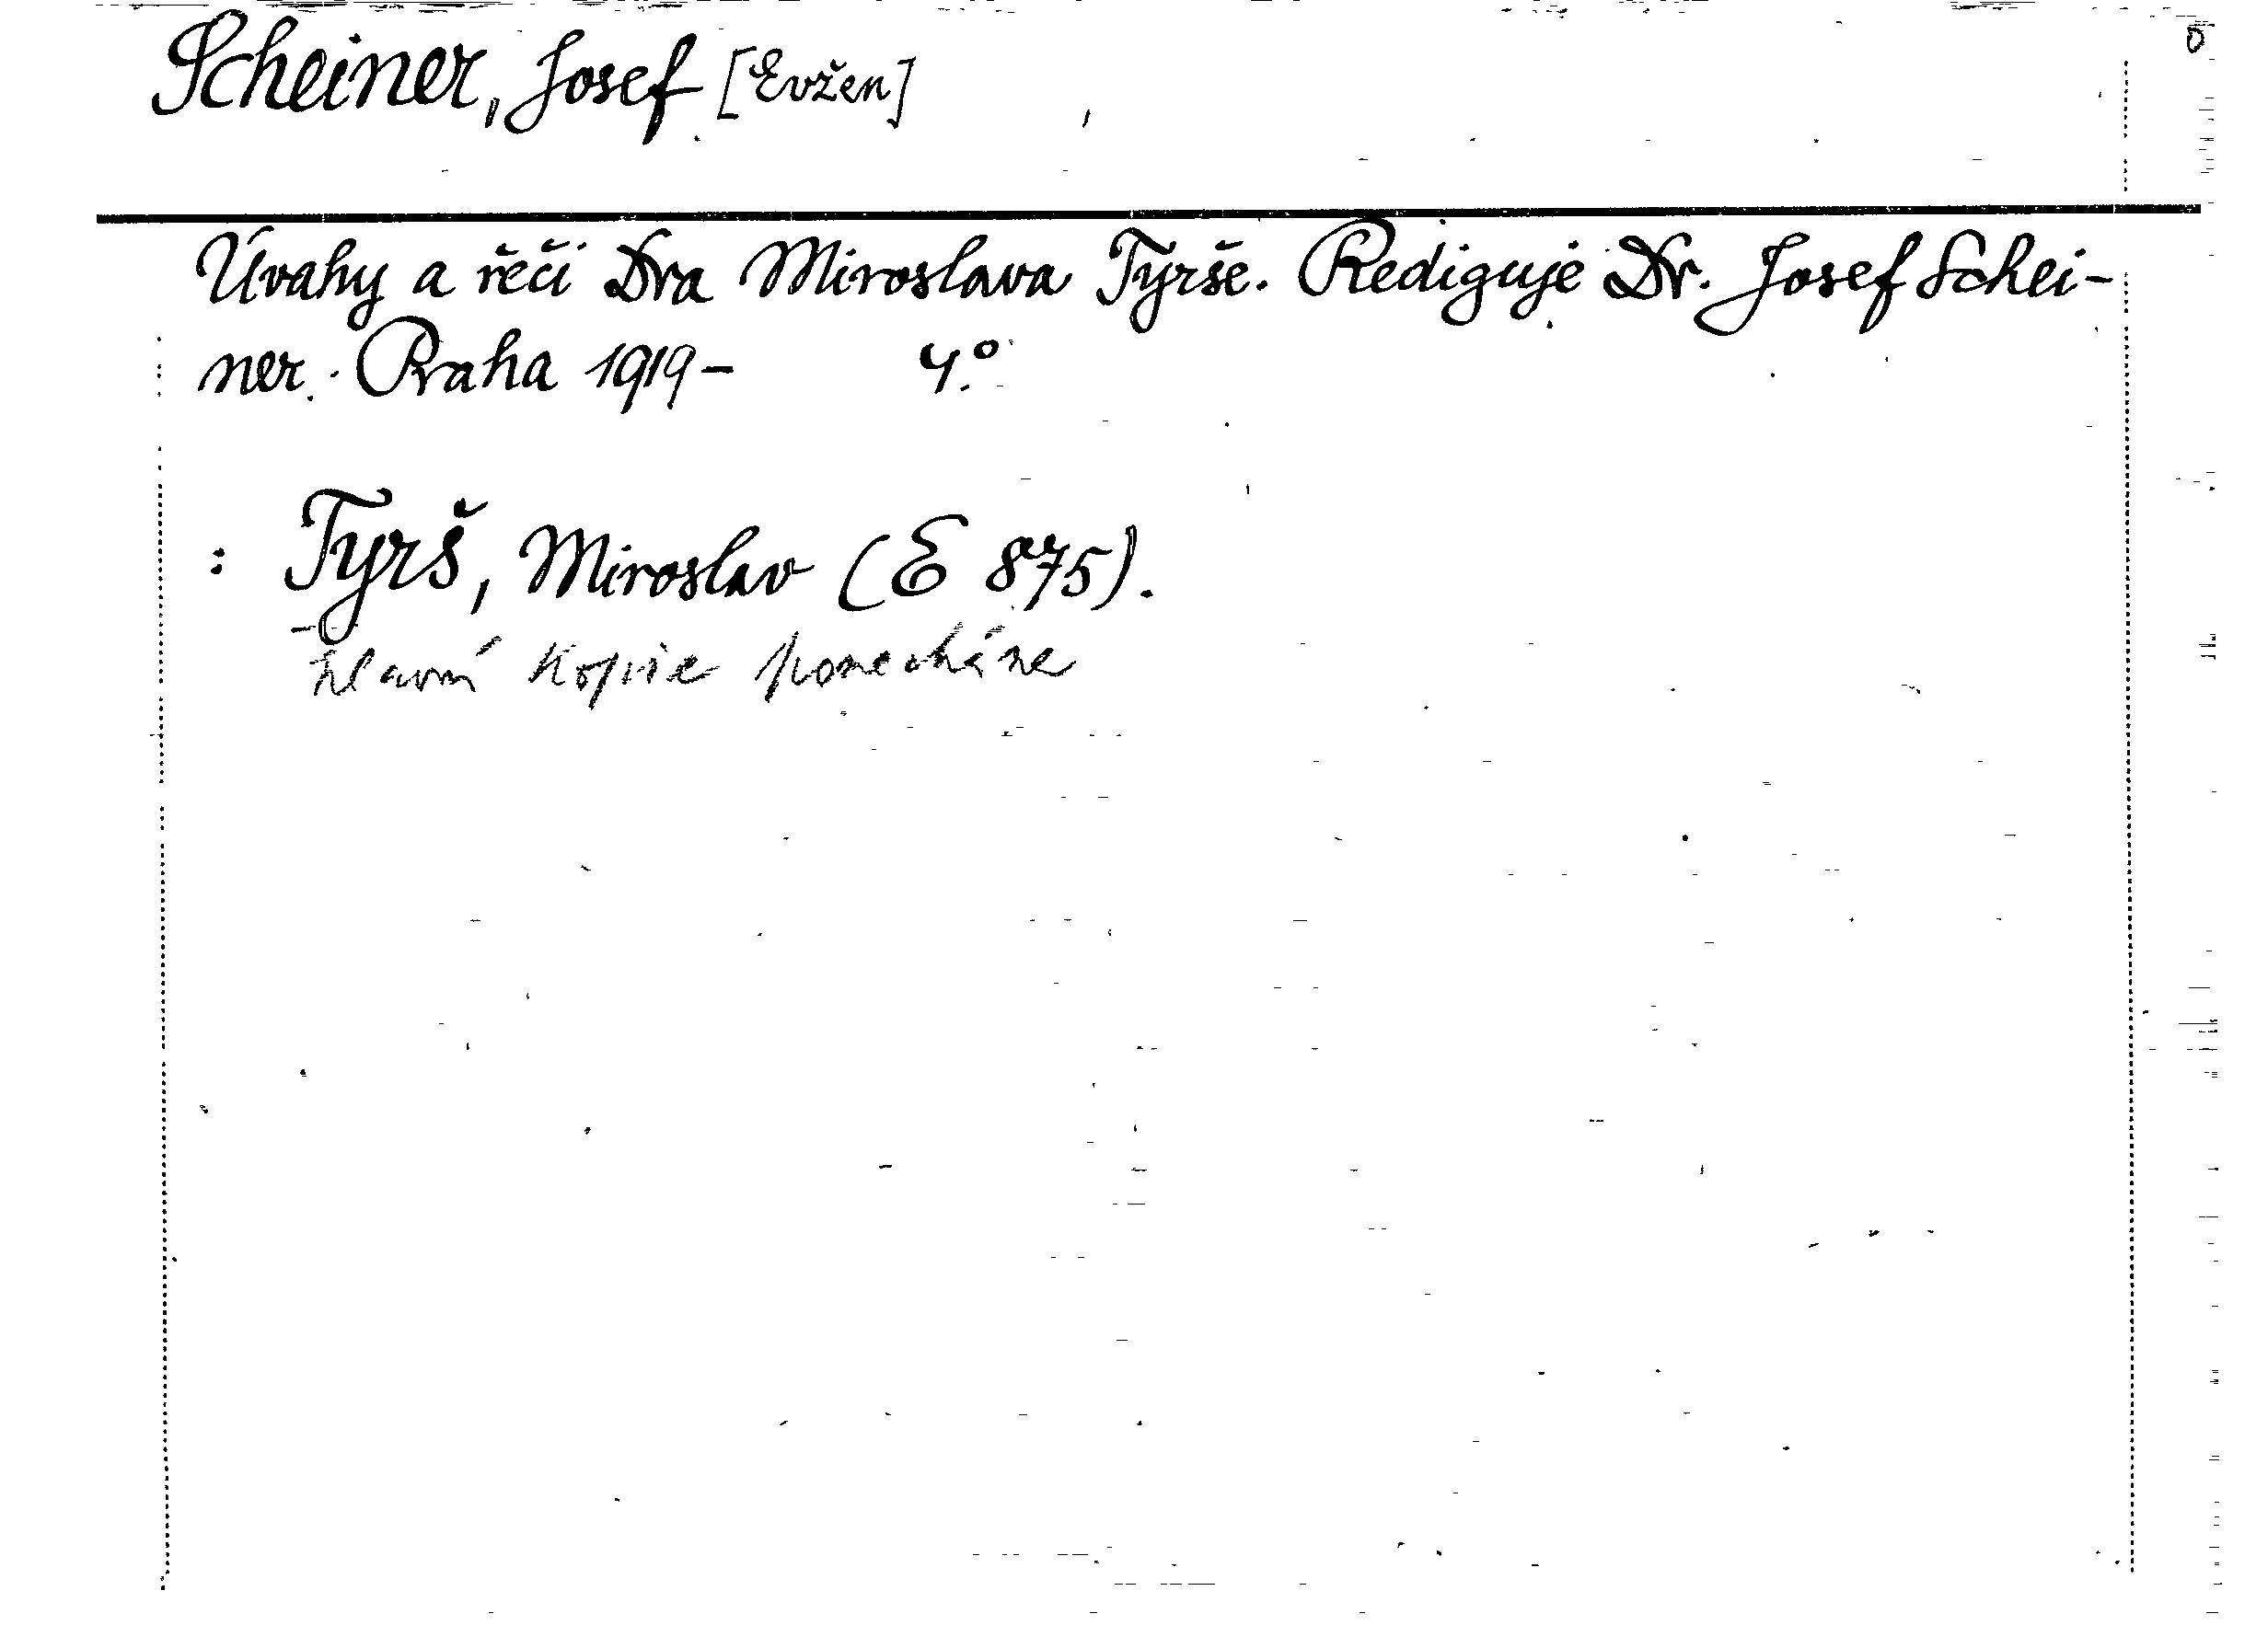 Scheiner, Josef [Evžen]
Úvahy a řeči Dra Miroslava Tyrše. Rediguje Dr. Josef Schei-
ner. Praha 1919- 4.°
: Tyrš, Miroslav (E 875).
hlavní kopie